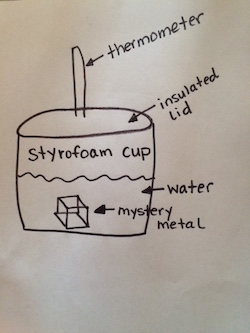 thermometer
insulated
lid
Styrofoam cup
water
mystery
metal